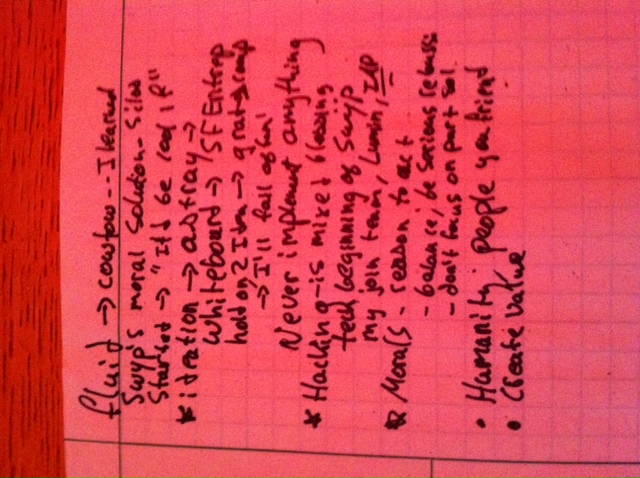 fluid → cowtow -- I learned
Swyp's moral solution - Silos
Started → "It'd be cool if"
* ideation → astray →
whiteboard → SF Entrep
hold on 2 Idea →
→ 'I'll fall again'
Never implement anything
* Hacking - is mixed blessing
tech beginning of Swÿp
my join team, Lumin, IAP
* Morals - reason to act
- balance; be serious
- don't focus on part sol.
• Humanity; people you friend
• Create Value